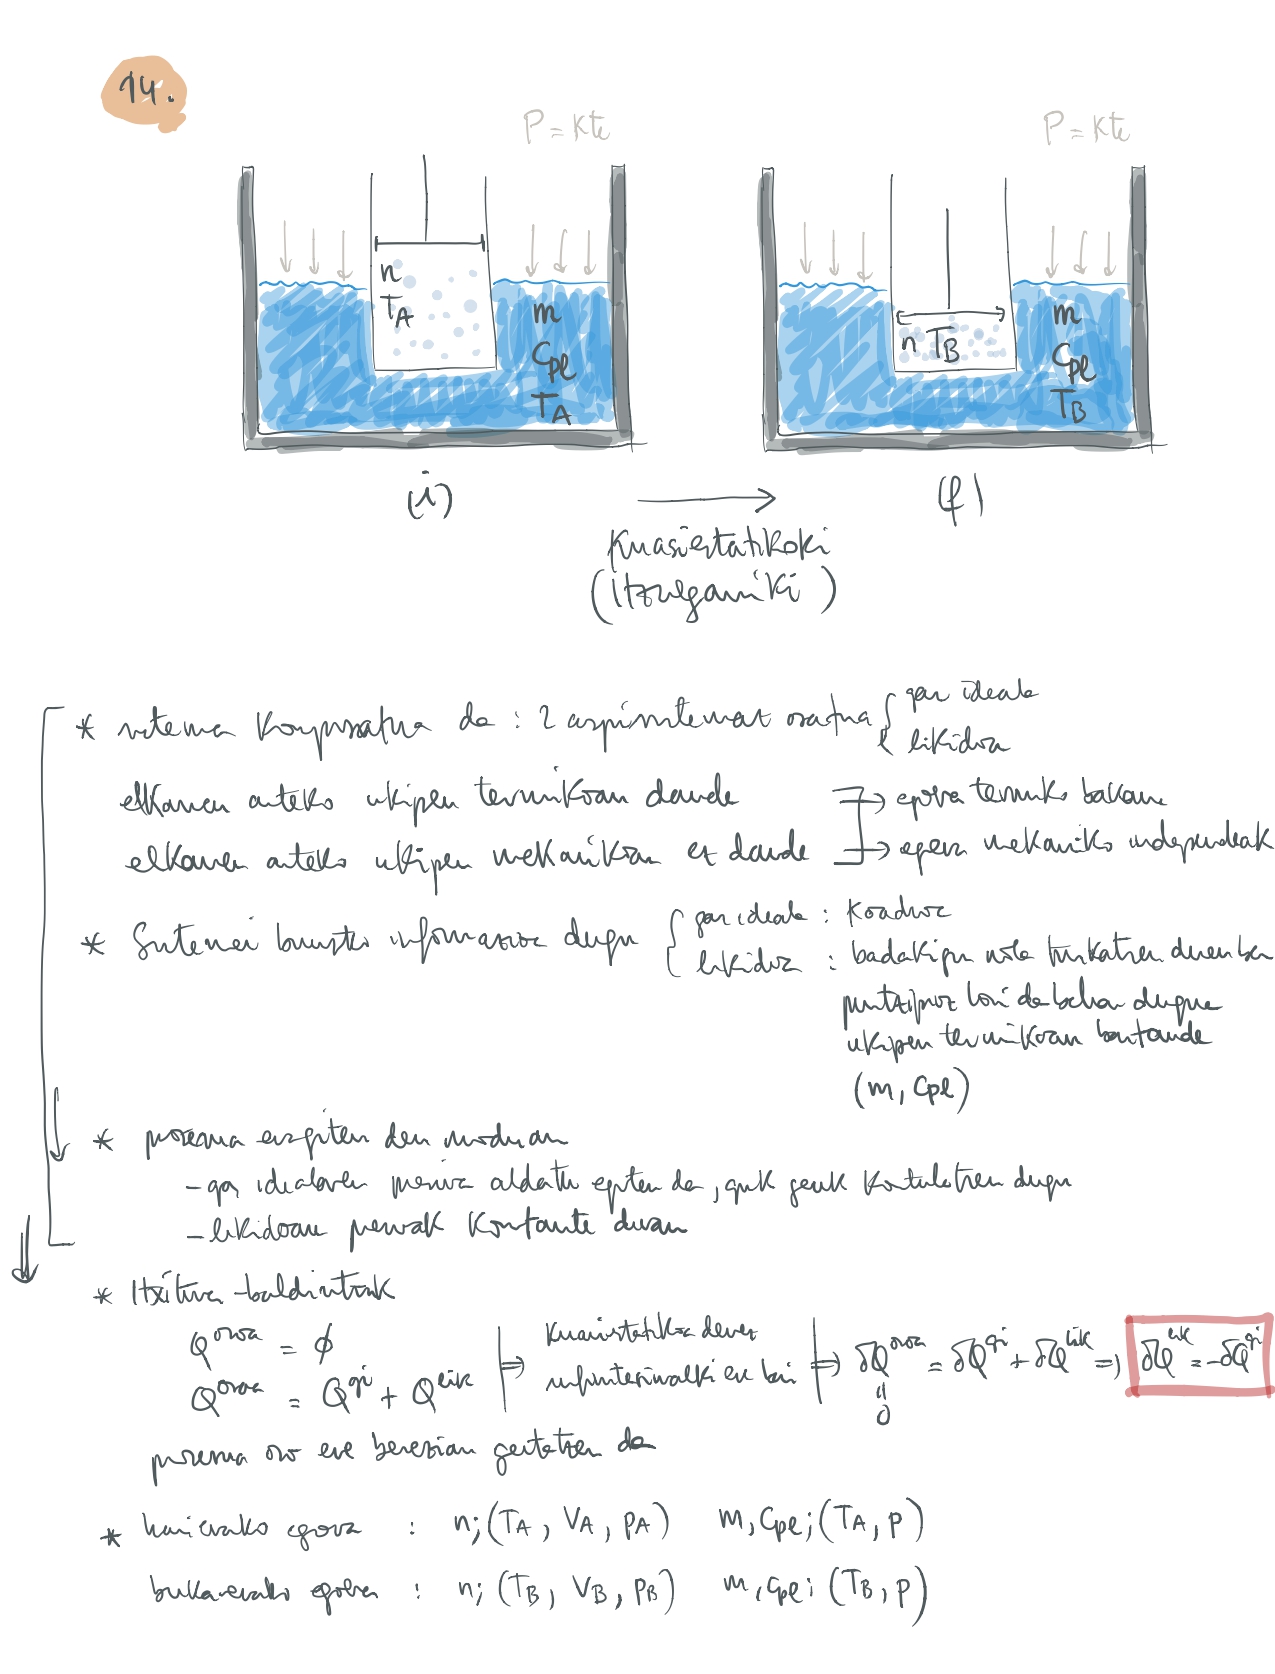 14.
P = kte
P = kte
n
TA
m
Cpl
TA
n TB
m
Cpl
TB
(i)
(f)
Kuasiestatikoki
(itzulgarriki)
* sistema konposatua da : 2 azpisistemaz osatua { gas ideala
likidoa
elkarren arteko ukipen termikoan daude → egoera termiko bakarra
elkarren arteko ukipen mekanikoan ez daude → egoera mekaniko independeak
* Sistemei buruzko informazioa dugu { gas ideala : Koadroa
likidoa : badakigu nola trukatzen duen bero
puntzipioz hori da behar duguna
ukipen termikoan baitaude
(m, cpl)
* prozesua eragiten den moduan
- gas idealaren presioa aldatu egiten da, guk geuk kontrolatzen dugu
- likidoaren presioak konstante dirau
* Itxitura-baldintzak
Q^osoa = ϕ
Q^osoa = Q^gi + Q^lik
Kuasiestatikoa denez
infinitesimalki ere bai
δQ^osoa = δQ^gi + δQ^lik =>
δQ^lik = -δQ^gi
"
0
prozesua oso ere berezian gertatzen da
* hasierako egoera : n; (TA, VA, pA) m, cpl; (TA, p)
bukaerako egoera : n; (TB, VB, pB) m, cpl; (TB, p)